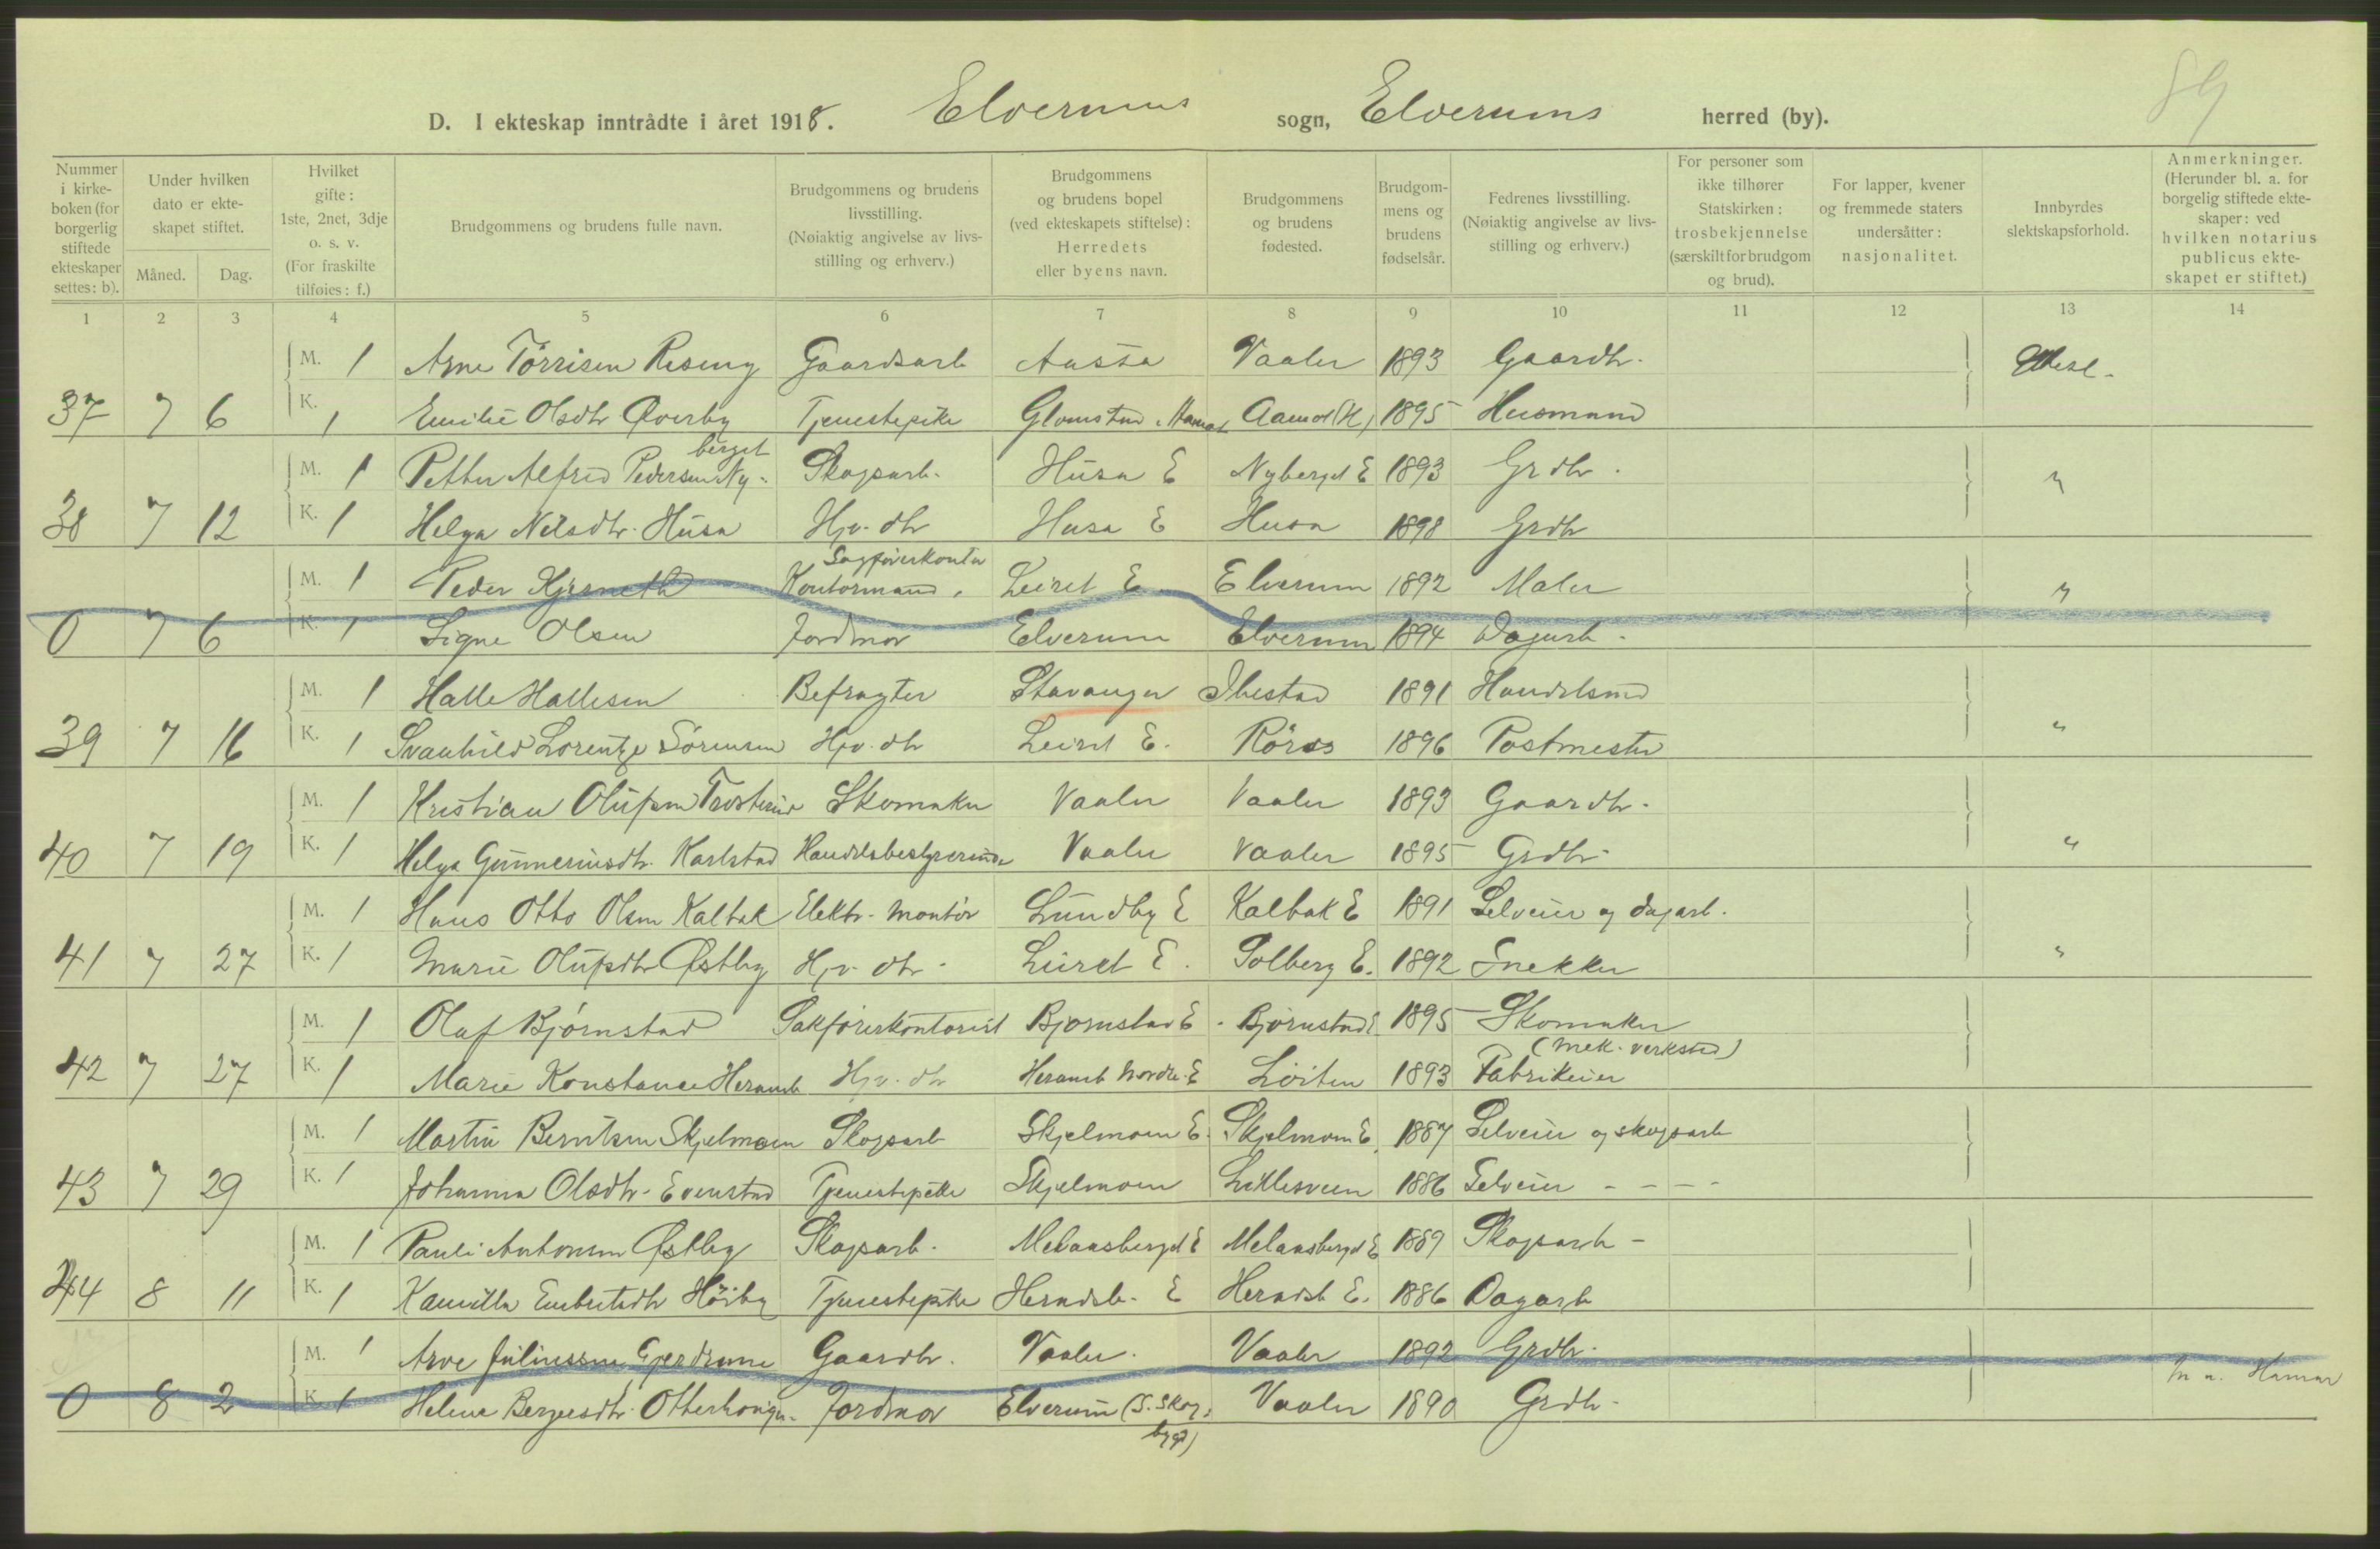 89
D. I ekteskap inntrådte i året 1918. Elverums sogn, Elverums herred (by).
Nummer i kirkeboken (for borgerlig stiftede ekteskaper settes: b).
Under hvilken dato er ekteskapet stiftet.
Måned. Dag.
Hvilket gifte: 1ste, 2net, 3dje o. s. v. (For fraskilte tilføies: f.)
Brudgommens og brudens fulle navn.
Brudgommens og brudens livsstilling. (Nøiaktig angivelse av livsstilling og erhverv.)
Brudgommens og brudens bopel (ved ekteskapets stiftelse): Herredets eller byens navn.
Brudgommens og brudens fødested.
Brudgommens og brudens fødselsår.
Fedrenes livsstilling. (Nøiaktig angivelse av livsstilling og erhverv.)
For personer som ikke tilhører Statskirken: trosbekjennelse (særskilt for brudgom og brud).
For lapper, kvener og fremmede staters undersåtter: nasjonalitet.
Innbyrdes slektskapsforhold.
Anmerkninger. (Herunder bl. a. for borgelig stiftede ekteskaper: ved hvilken notarius publicus ekteskapet er stiftet.)
1 2 3 4 5 6 7 8 9 10 11 12 13 14
M. 1 Arne Törrisen Gaardsarb Aasta Vaaler 1893 Gaardbr.
37 7 6 K. 1 Emilie Olsdtr Øverby Tjenestepike Glomstad Aamot (H) 1895 Husmand
M. 1 Petter Alfred Pedersen Nyberget Skogsarb. Husa E Nyberget E 1893 Grdbr.
38 7 12 K. 1 Helga Nilsdtr. Husa Hjv. dtr Husa E Husa 1898 Grdbr
M. 1 Peder Kontormand, Sagførerkontor Leiret E Elverum 1892 Maler "
0 7 6 K. 1 Signe Olsen Jordmor Elverum Elverum 1894 Dagarb.
M. 1 Halle Hallesen Befragter Stavanger Ibestad 1891 Handelsmd
39 7 16 K. 1 Svanhild Lorentze Sörensen Hjv. dtr Leiret E. Röros 1896 Postmester "
M. 1 Kristian Olufsen Skomaker Vaaler Vaaler 1893 Gaardbr.
40 7 19 K. 1 Helga Gunneriusdtr. Karlstad Handelsbestyrerinde Vaaler Vaaler 1895 Grdbr. "
M. 1 Hans Otto Olsen Kalbak Elektr. montør Lundby E Kalbak E 1891 Selveier og dagarb.
41 7 27 K. 1 Marie Olufsdtr Østby Hjv. dtr. Leiret E. Solberg E. 1892 Snekker "
M. 1 Olaf Bjørnstad Sakførerkontorist Bjørnstad E. Bjørnstad E 1895 Skomaker
42 7 27 K. 1 Marie Konstance Hjv. dtr nordre E Löiten 1893 Fabrikeier (mek. verksted)
M. 1 Martin Berntsen Skjelmoen Skogsarb Skjelmoen E. Skjelmoen E. 1887 Selveier og skogsarb
43 7 29 K. 1 Johanna Olsdtr. Evenstad Tjenestepike Skjelmoen 1886 Selveier - - - -
M. 1 Pauli Antonsen Østby Skogsarb. Melaasberget E Melaasberget E 1889 Skogsarb -
44 8 11 K. 1 Kamilla Embretsdtr Höiby Tjenestepike Herndsb. E Herndsb E. 1886 Dagarb
M. 1 Arve Juliussen Gjerdrum Gaardbr. Vaaler. Vaaler 1892 Grdbr.
0 8 2 K. 1 Helene Bergersdtr. Jordmor Elverum (S. Skogbygd) Vaaler 1890 Grdbr. Hamar